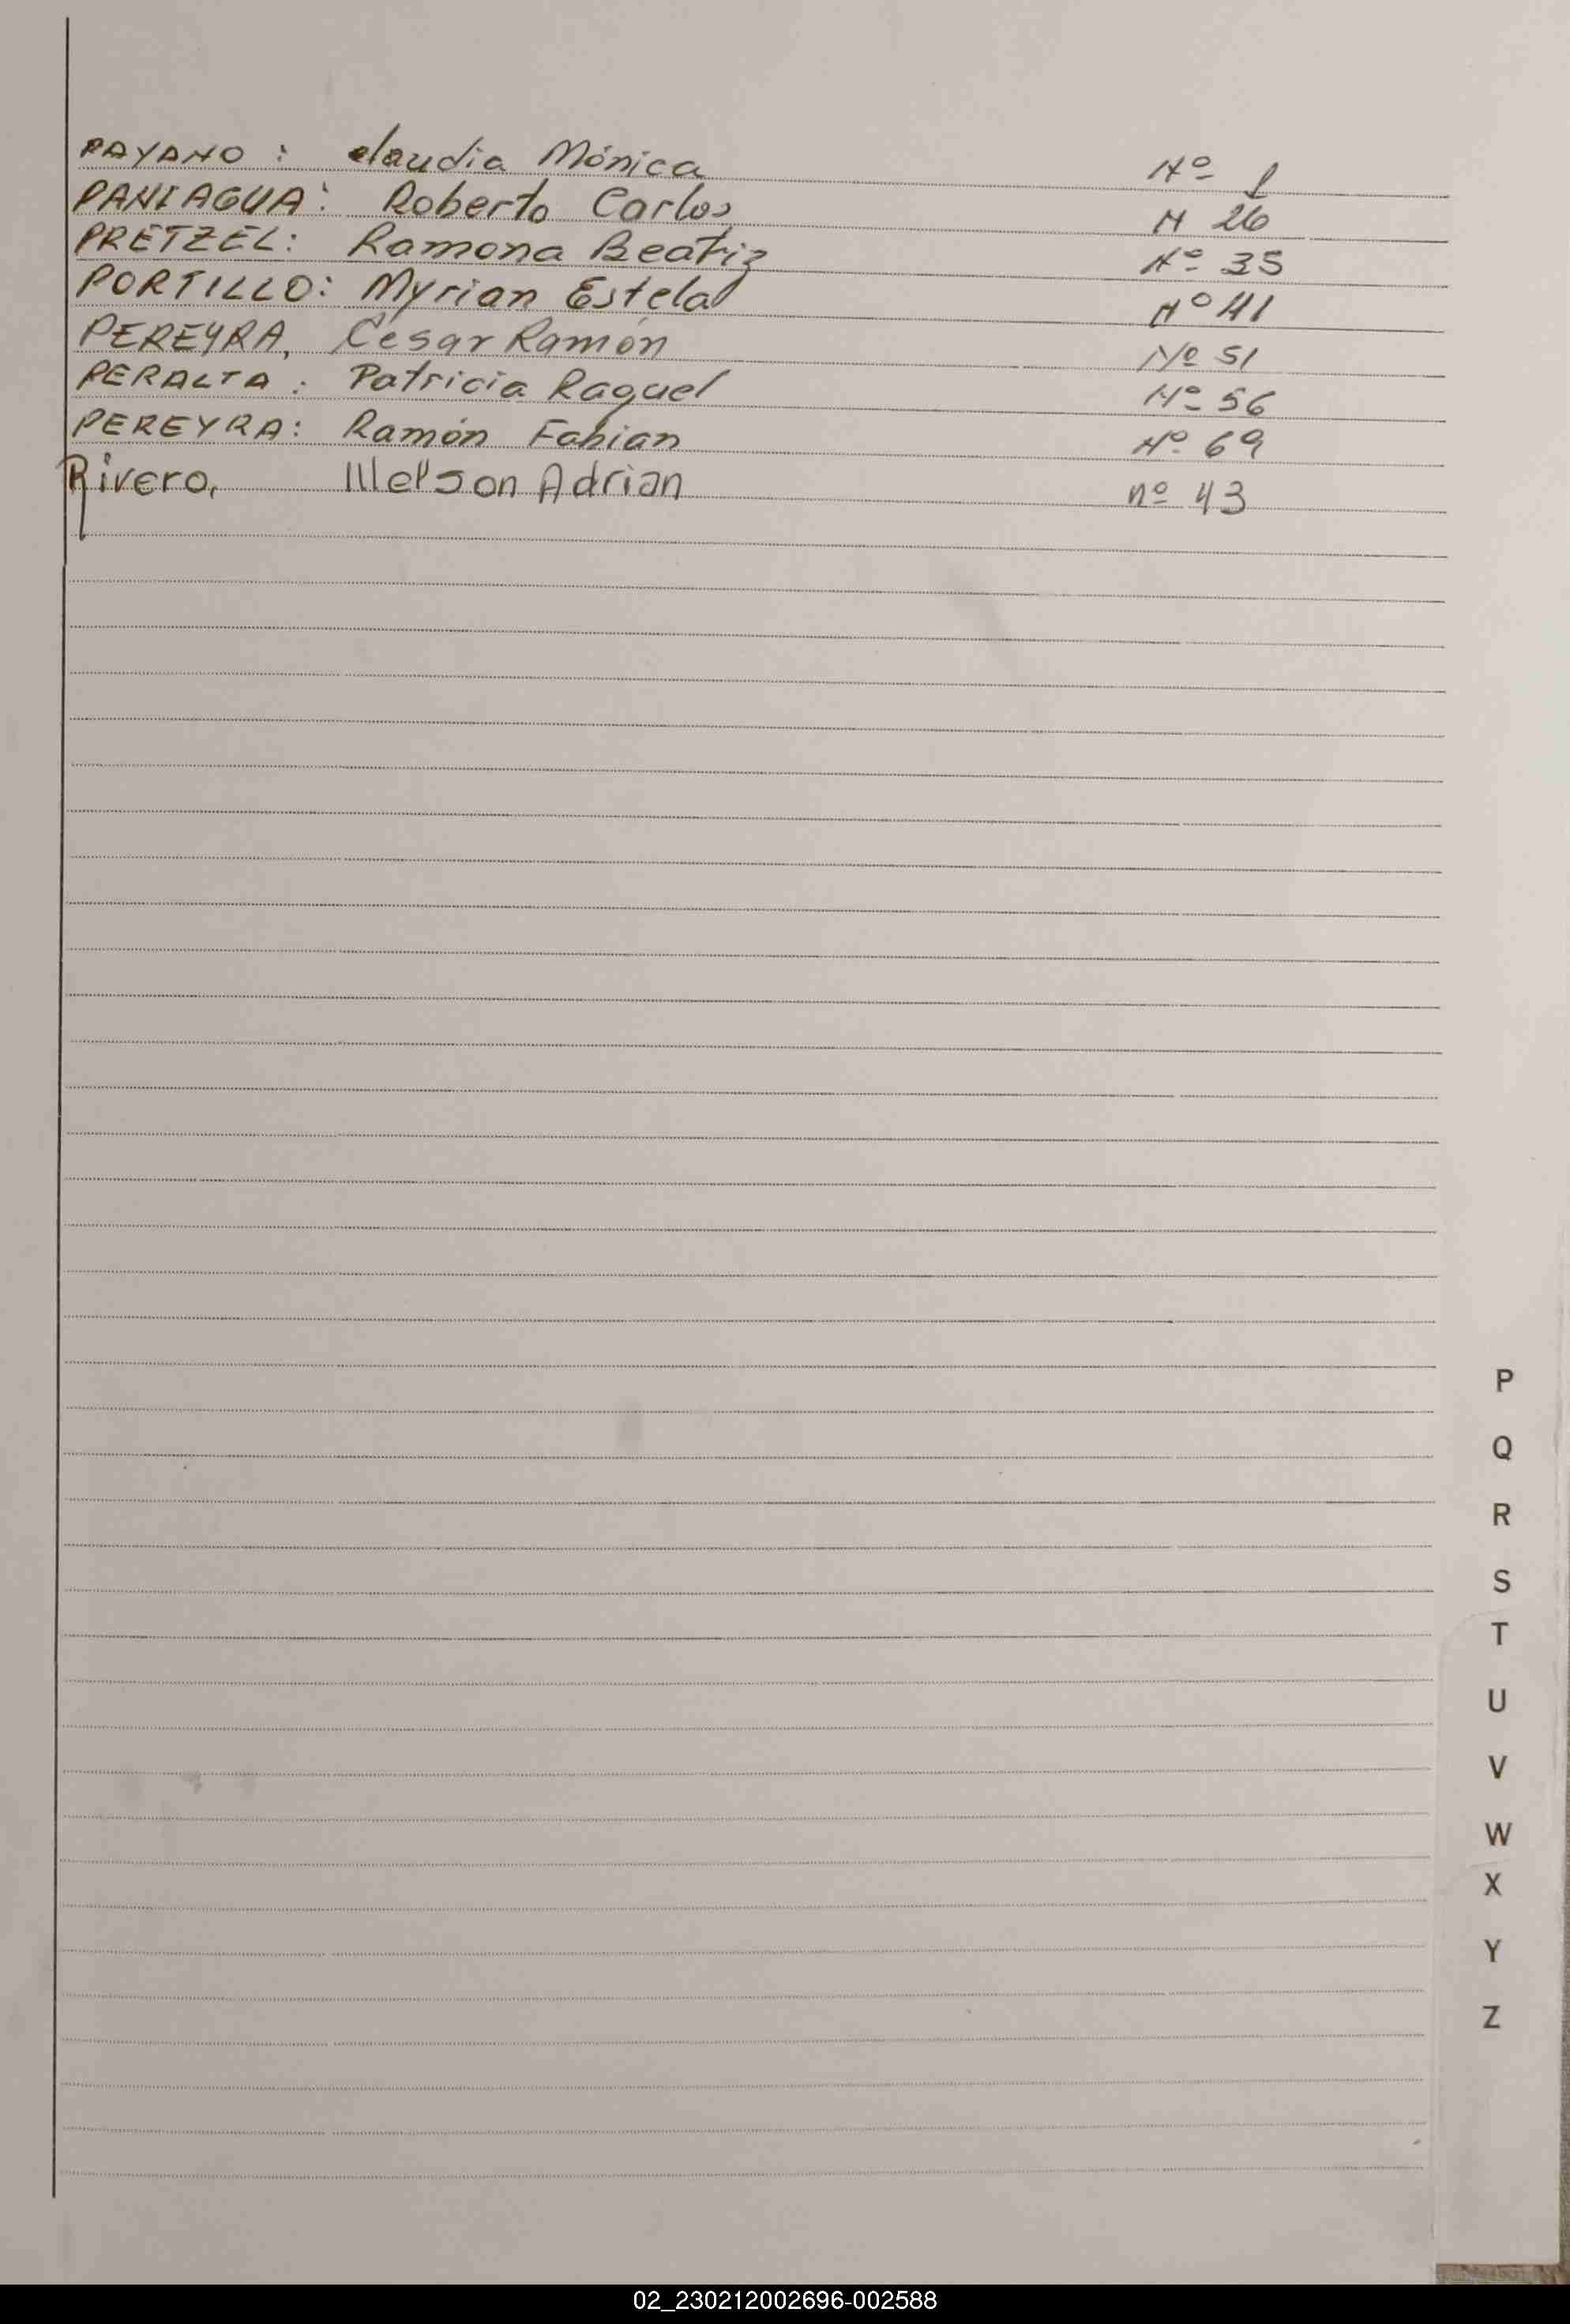 PAYANO : Claudia Mónica Nº 1
PANIAGUA: Roberto Carlos N 26
PRETZEL: Ramona Beatriz Nº 35
PORTILLO: Myrian Estela Nº 41
PEREYRA, Cesar Ramón Nº 51
PERALTA : Patricia Raquel Nº 56
PEREYRA: Ramón Fabian Nº 69
Rivero, Nelson Adrian nº 43
P
Q
R
S
T
U
V
W
X
Y
Z
02_230212002696-002588